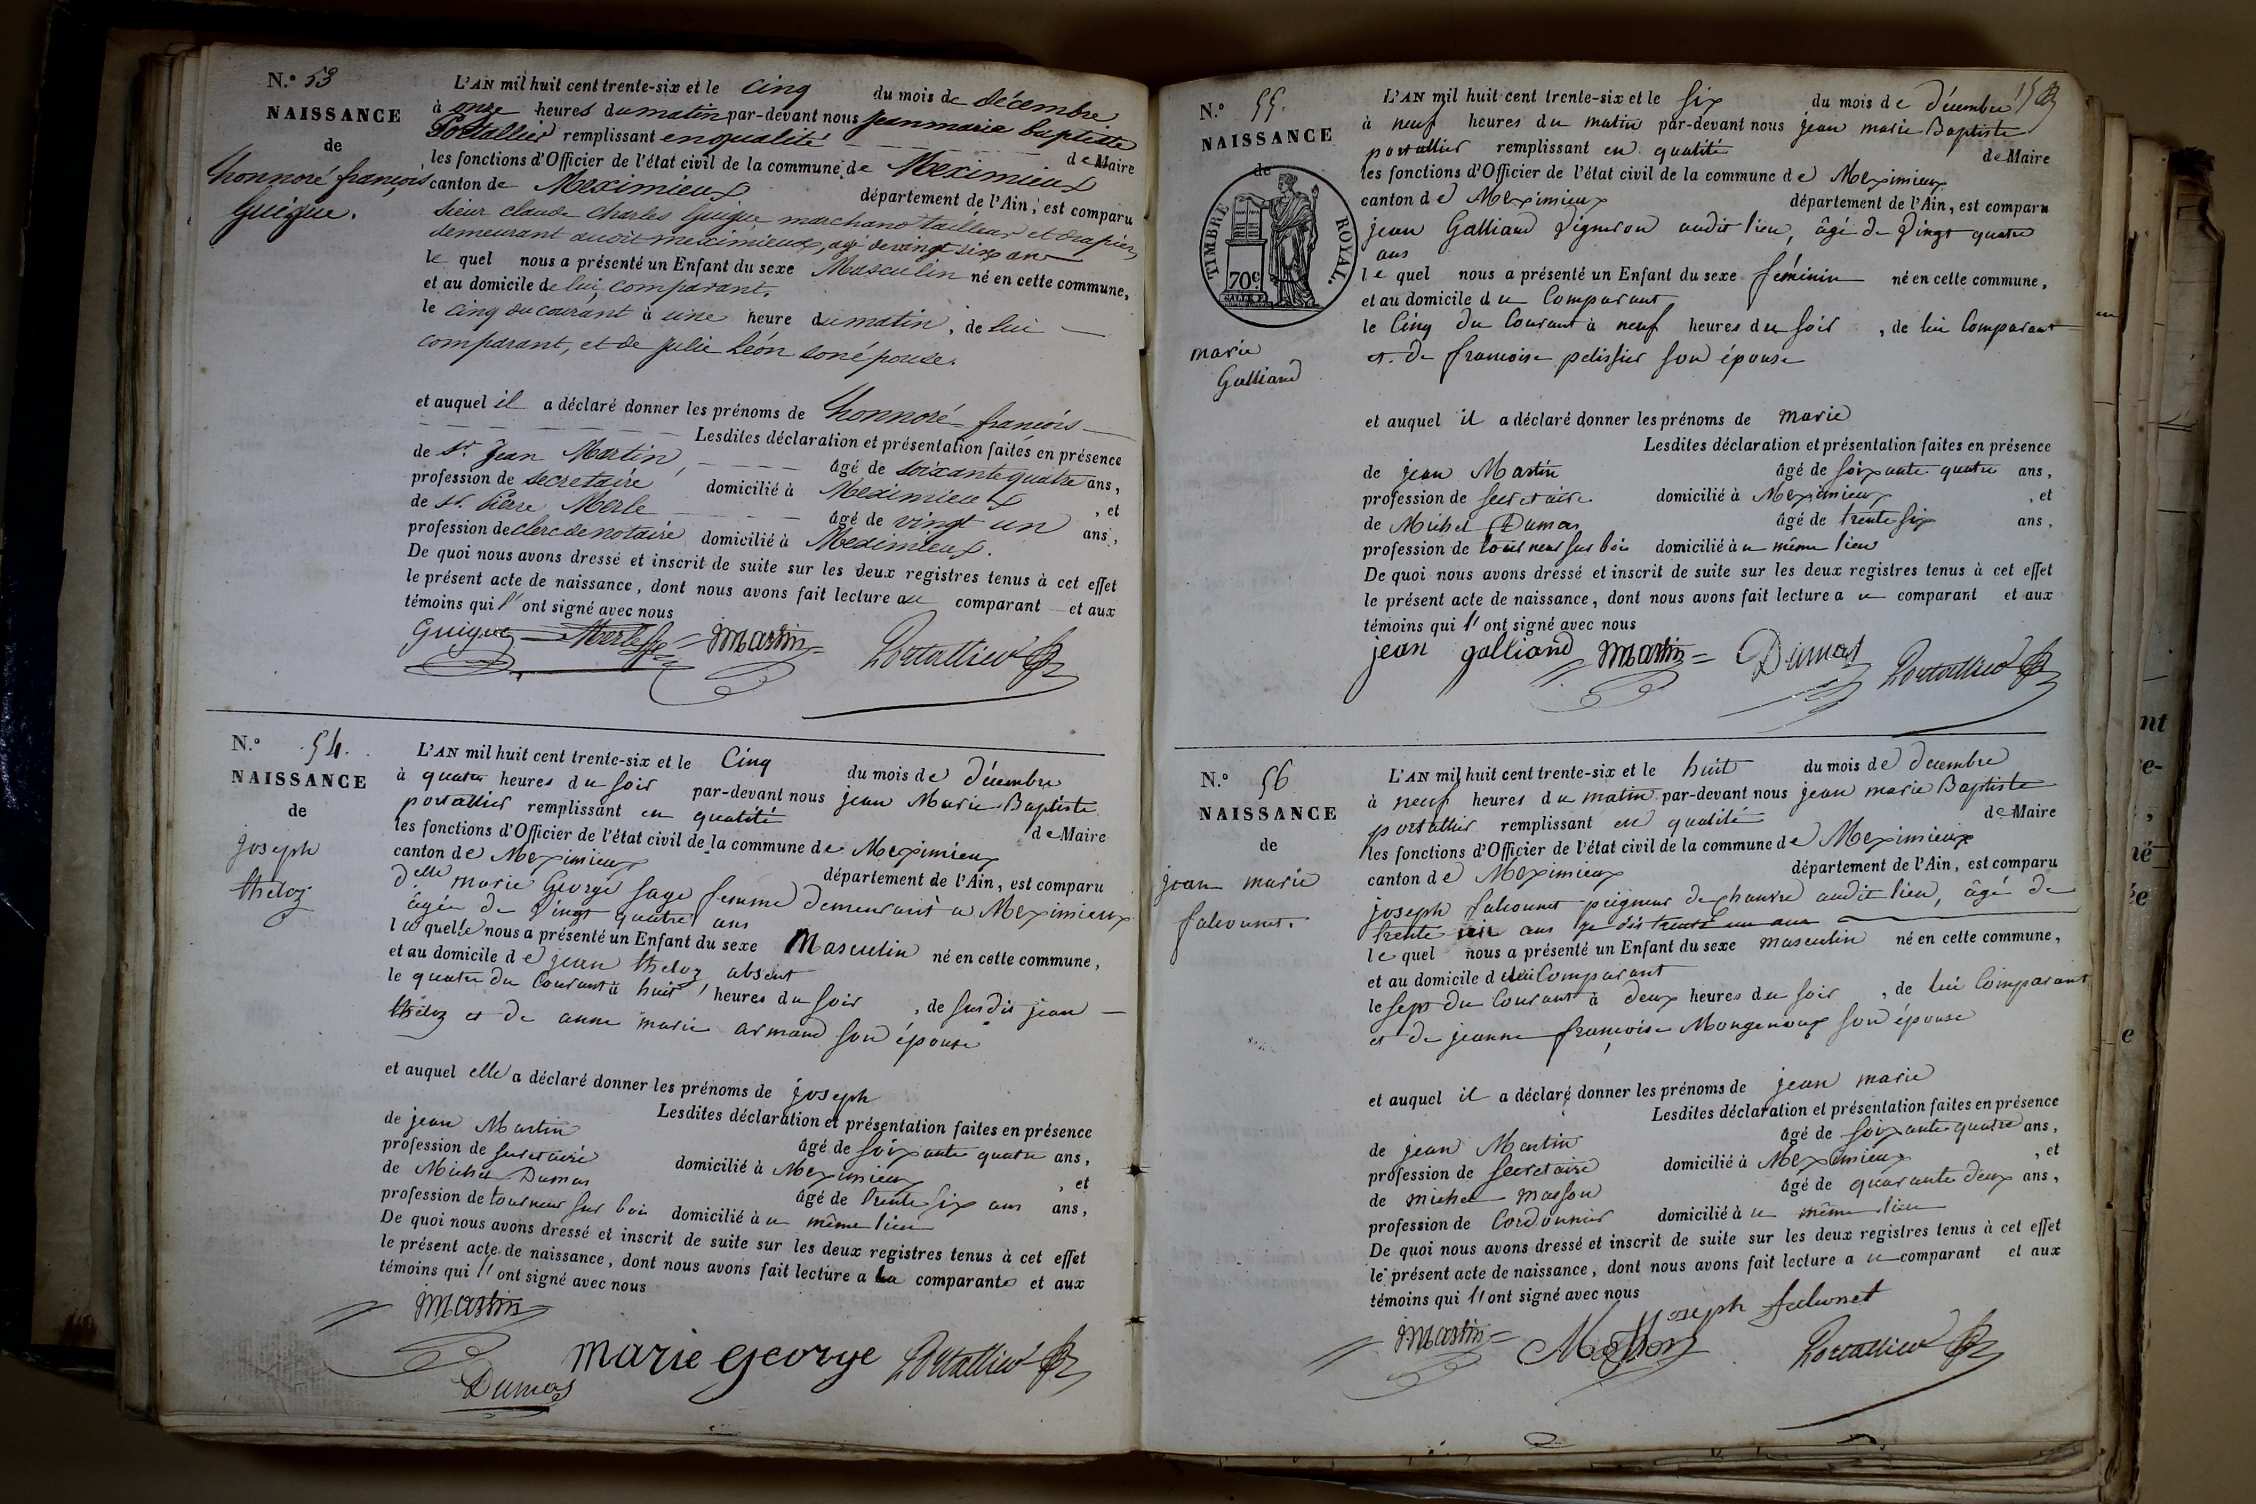 N.° 53
NAISSANCE
de
honnoré françois
Guigue.
L'AN mil huit cent trente-six et le cinq du mois de décembre
à onze heures du matin par-devant nous jean marie baptiste
Portallier remplissant en qualité de Maire
les fonctions d'Officier de l'état civil de la commune de Meximieux
canton de Meximieux département de l'Ain, est comparu
sieur claude charles Guigue marchand tailleur et drapier
demeurant audit meximieux, agé de vingt six ans
le quel nous a présenté un Enfant du sexe Masculin né en cette commune,
et au domicile de lui comparant,
le cinq du courant à une heure du matin, de lui
comparant, et de julie Léon son épouse.
et auquel il a déclaré donner les prénoms de honnoré françois
Lesdites déclaration et présentation faites en présence
de sr. Jean Martin, âgé de soixante quatre ans,
profession de secretaire domicilié à Meximieux, et
de sr. Pierre Merle âgé de vingt un ans,
profession de clerc de notaire domicilié à Meximieux.
De quoi nous avons dressé et inscrit de suite sur les deux registres tenus à cet effet
le présent acte de naissance, dont nous avons fait lecture au comparant et aux
témoins qui l' ont signé avec nous
Guigue Merle Martin Portallier
N.° 54.
NAISSANCE
de
joseph
theloz
L'AN mil huit cent trente-six et le Cinq du mois de décembre
à quatre heures du soir par-devant nous jean Marie Baptiste
portallier remplissant en qualité de Maire
les fonctions d'Officier de l'état civil de la commune de Meximieux
canton de Meximieux département de l'Ain, est comparu
delle marie George sage femme demeurant a Meximieux
âgée de vingt quatre ans
la quelle nous a présenté un Enfant du sexe Masculin né en cette commune,
et au domicile de jean theloz absent
le quatre du Courant à huit heures du soir, de susdit jean
théloz et de anne marie armand son épouse
et auquel elle a déclaré donner les prénoms de joseph
Lesdites déclaration et présentation faites en présence
de jean Martin âgé de soixante quatre ans,
profession de secretaire domicilié à Meximieux, et
de Michel Dumas âgé de trente six ans ans,
profession de tourneur sur bois domicilié à u même lieu
De quoi nous avons dressé et inscrit de suite sur les deux registres tenus à cet effet
le présent acte de naissance, dont nous avons fait lecture a la comparante et aux
témoins qui l' ont signé avec nous
Martin
Marie George Portallier
Dumas
N.° 55.
NAISSANCE
de
TIMBRE ROYAL.
70c
marie
Galliand
L'AN mil huit cent trente-six et le six du mois de décembre
à neuf heures du matin par-devant nous jean marie Baptiste
portallier remplissant en qualité de Maire
les fonctions d'Officier de l'état civil de la commune de Meximieux
canton de Meximieux département de l'Ain, est comparu
jean Galliand vigneron audit lieu, âgé de vingt quatre
ans
le quel nous a présenté un Enfant du sexe féminin né en cette commune,
et au domicile du Comparant
le Cinq du Courant à neuf heures du soir, de lui Comparant
et de francoise pelissier son épouse
et auquel il a déclaré donner les prénoms de marie
Lesdites déclaration et présentation faites en présence
de jean Martin âgé de soixante quatre ans,
profession de secretaire domicilié à Meximieux, et
de Michel Dumas âgé de trente six ans,
profession de tourneur sur bois domicilié à u même lieu
De quoi nous avons dressé et inscrit de suite sur les deux registres tenus à cet effet
le présent acte de naissance, dont nous avons fait lecture a u comparant et aux
témoins qui l' ont signé avec nous
jean galliand Martin Dumas Portallier
N.° 56
NAISSANCE
de
jean marie
falconnet.
L'AN mil huit cent trente-six et le huit du mois de decembre
à neuf heures du matin par-devant nous jean marie Baptiste
portallier remplissant en qualité de Maire
les fonctions d'Officier de l'état civil de la commune de Meximieux
canton de Meximieux département de l'Ain, est comparu
joseph falconnet peigneur de chanvre audit lieu, âgé de
trente ans je dis trente un ans
le quel nous a présenté un Enfant du sexe masculin né en cette commune,
et au domicile de lui Comparant
le sept du Courant à deux heures du soir, de lui Comparant
et de jeanne françoise Mongenoux son épouse
et auquel il a déclaré donner les prénoms de jean marie
Lesdites déclaration et présentation faites en présence
de jean Martin âgé de soixante quatre ans,
profession de secretaire domicilié à Meximieux, et
de michel masson âgé de quarante deux ans,
profession de Cordonnier domicilié à u même lieu
De quoi nous avons dressé et inscrit de suite sur les deux registres tenus à cet effet
le présent acte de naissance, dont nous avons fait lecture a u comparant et aux
témoins qui l' ont signé avec nous
joseph falconet
Martin Masson Portallier